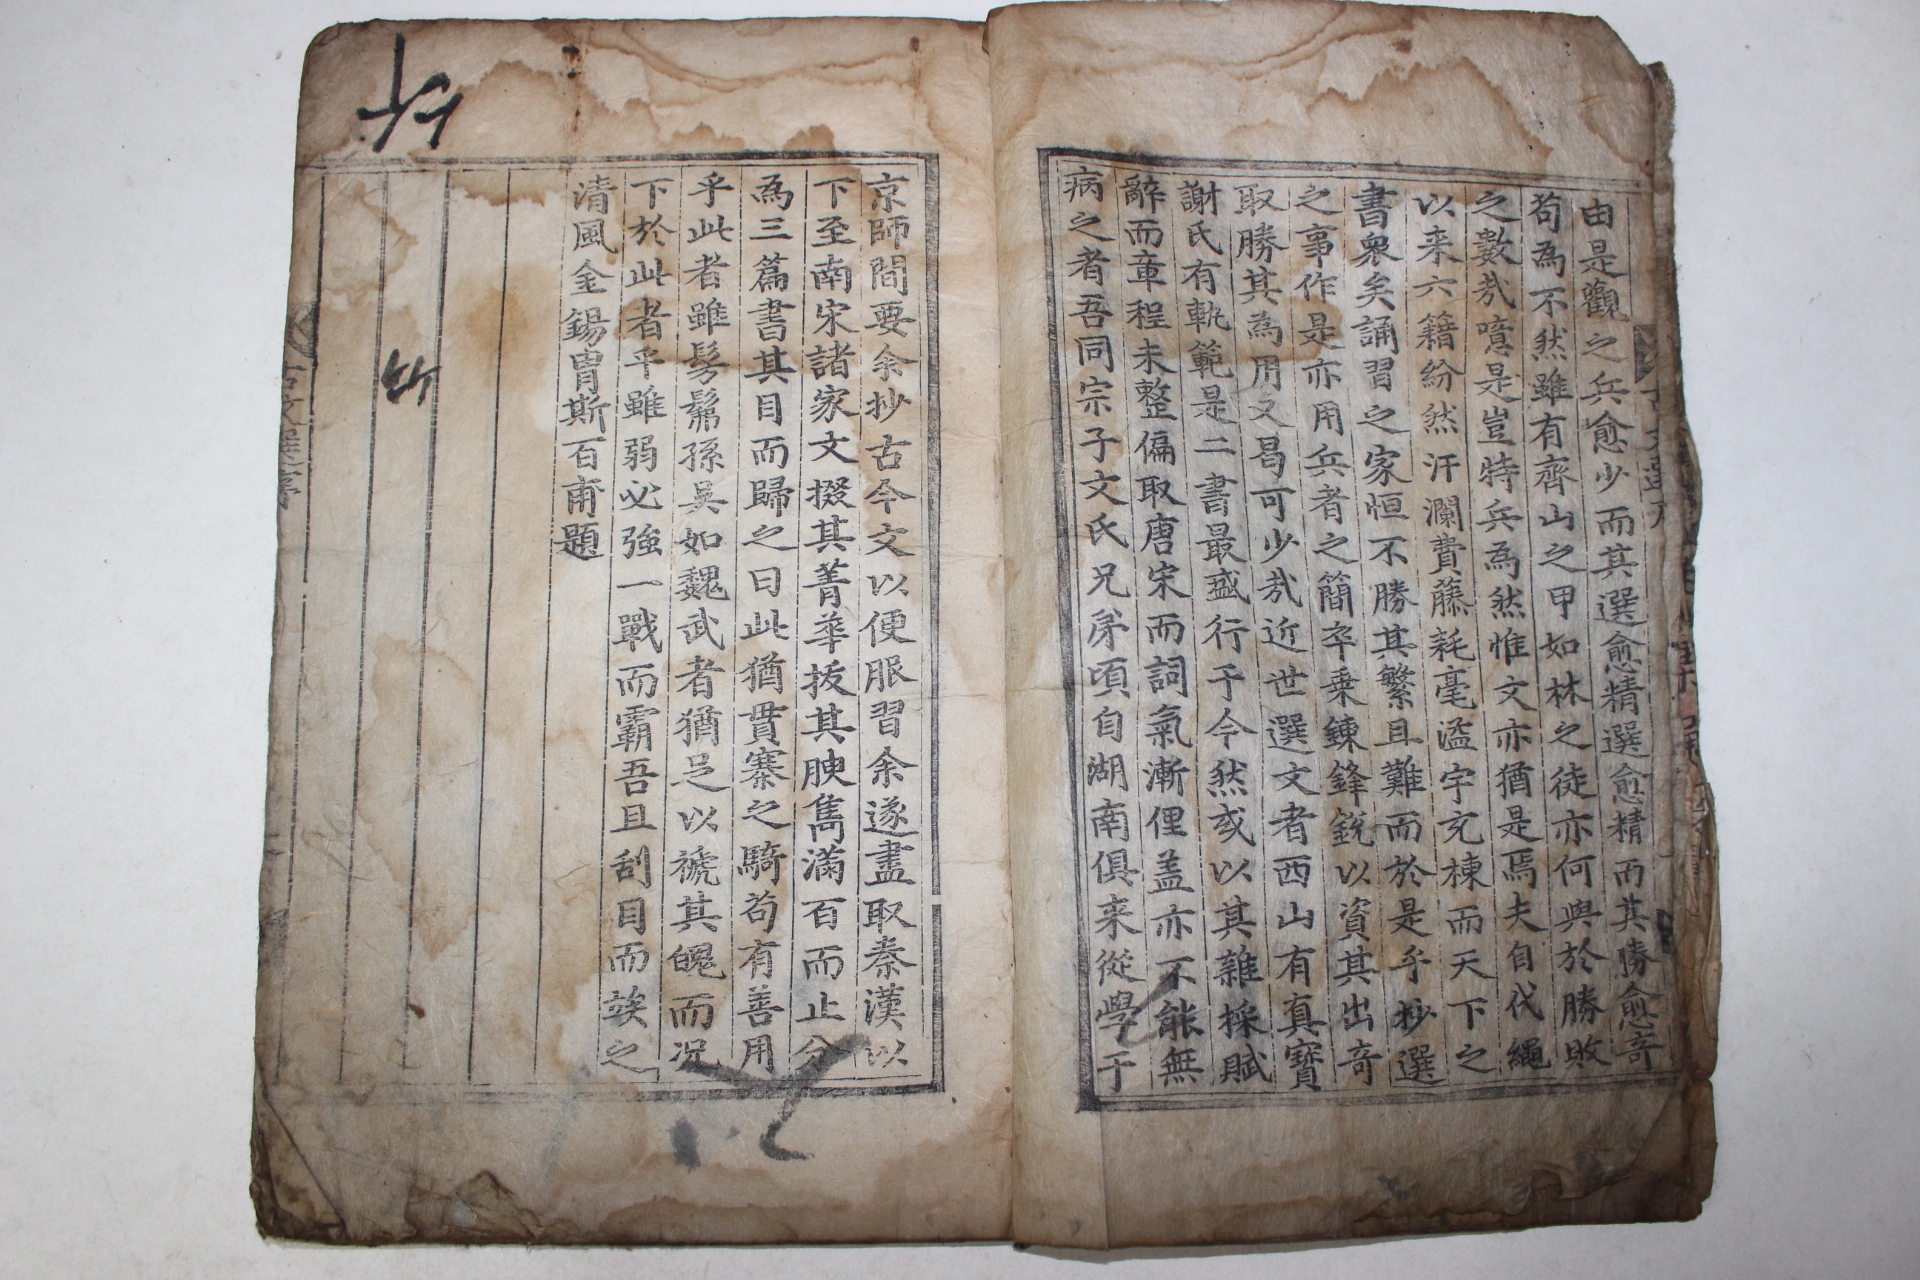 由是觀之兵愈少而其選愈精選愈精而其勝愈奇
苟為不然雖有齊山之甲如林之徒亦何與於勝敗
之數㢤噫是豈特兵為然惟文亦猶是焉夫自代繩
以来六籍紛然汗瀾費藤耗毫溢宇充棟而天下之
書衆矣誦習之家恒不勝其繁且難而於是乎抄選
之事作是亦用兵者之簡卒乗鍊鋒銳以資其出奇
取勝其為用文曷可少㢤近世選文者西山有真寶
謝氏有軌範是二書最盛行于今然或以其雜採賦
辭而章程未整偏取唐宋而詞氣漸俚盖亦不能無
病之者吾同宗子文氏兄弟頃自湖南俱来從學于
京師間要余抄古今文以便服習余遂盡取秦漢以
下至南宋諸家文掇其菁華拔其腴雋滿百而止分
為三篇書其目而歸之曰此猶貫寨之騎苟有善用
乎此者雖髣髴孫吳如魏武者猶足以褫其魄而况
下於此者乎雖弱必強一戰而霸吾且刮目而竢之
清風金錫胄斯百甫題
古文選序